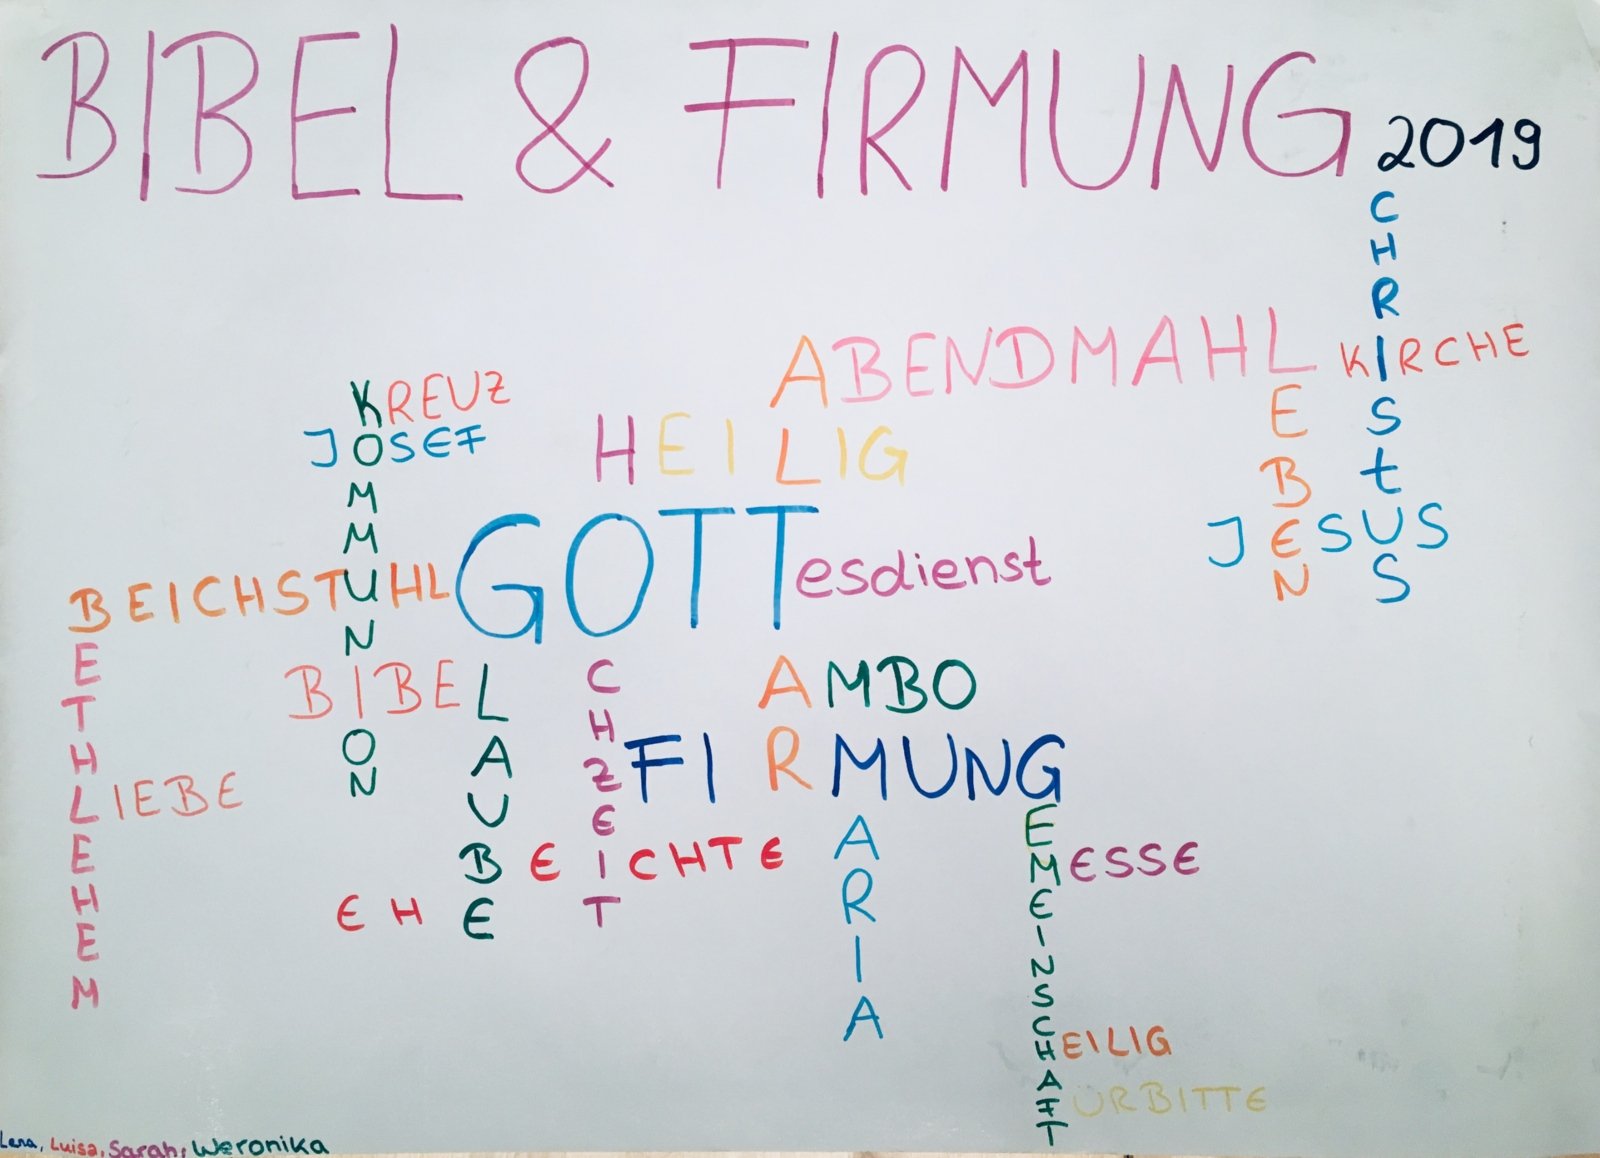 BIBEL & FIRMUNG 2019
CHRIStUS
ABENDMAHL
KIRCHE
LEBEN
JESUS
KREUZ
JOSEF
KOMMUNION
HEILIG
ALTAR
GOTTesdienst
BEICHSTUHL
BETHLEHEM
LIEBE
BIBEL
GLAUBE
HOCHZEIT
AMBO
FIRMUNG
MARIA
BEICHTE
EHE
GEMEINSCHAFT
MESSE
HEILIG
FÜRBITTE
Lena, Luisa, Sarah, Weronika